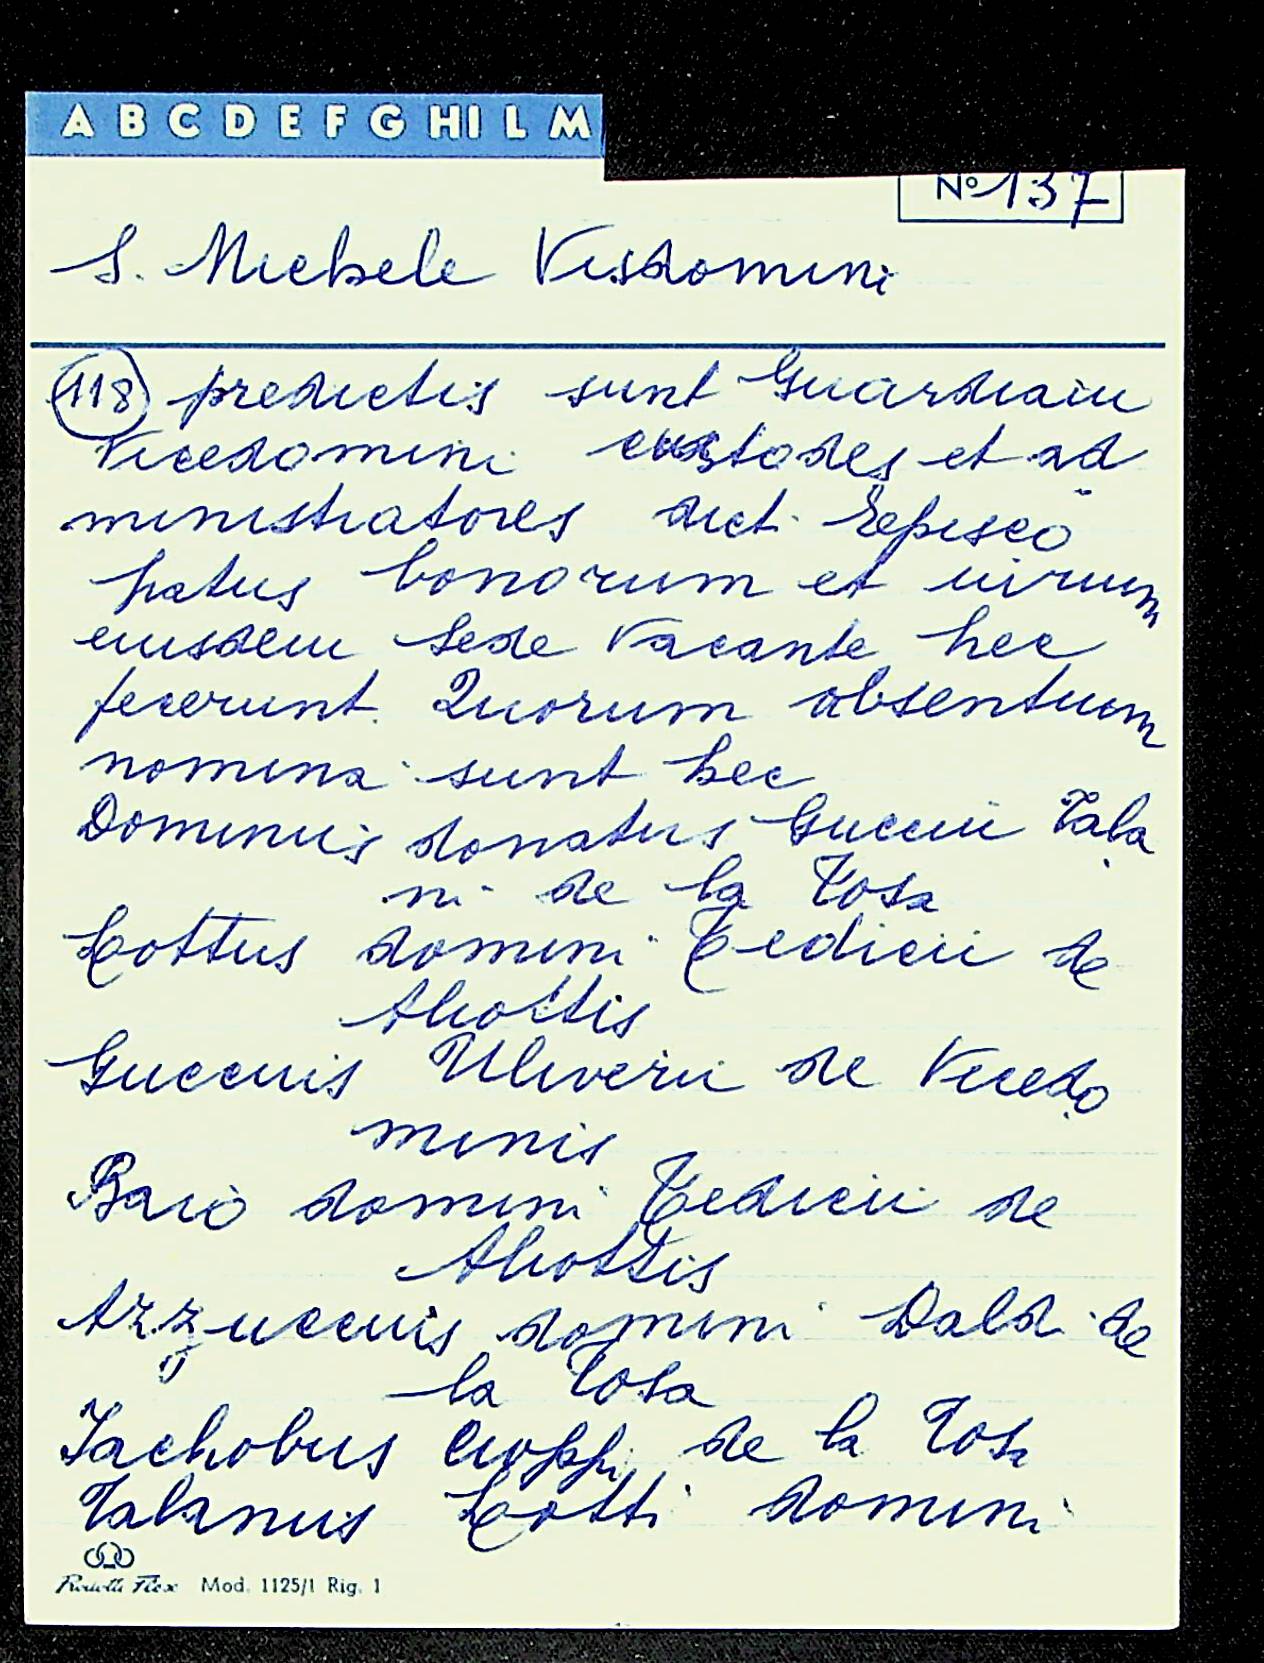 A B C D E F G HI L M
Nº 137
S. Michele Visdomini
118 predictis sunt Guardiani
Vicedomini custodes et ad
ministratores dict. Episco
patus bonorum et uirum
eiusdem Sede Vacante hec
fecerunt. Quorum absentium
nomina sunt hec
Dominus donatus Guccii Tala
ni de la Tosa
Lottus domini Tedicii de
Aliottis
Guccius Uliverii de Vicedo
minis
Baio domini Tedicii de
Aliottis
Azzuccius domini Daldi de
la Tosa
Jachobus Cioppi de la Tosa
Talanus Lotti domini
Mod. 1125/1 Rig. 1